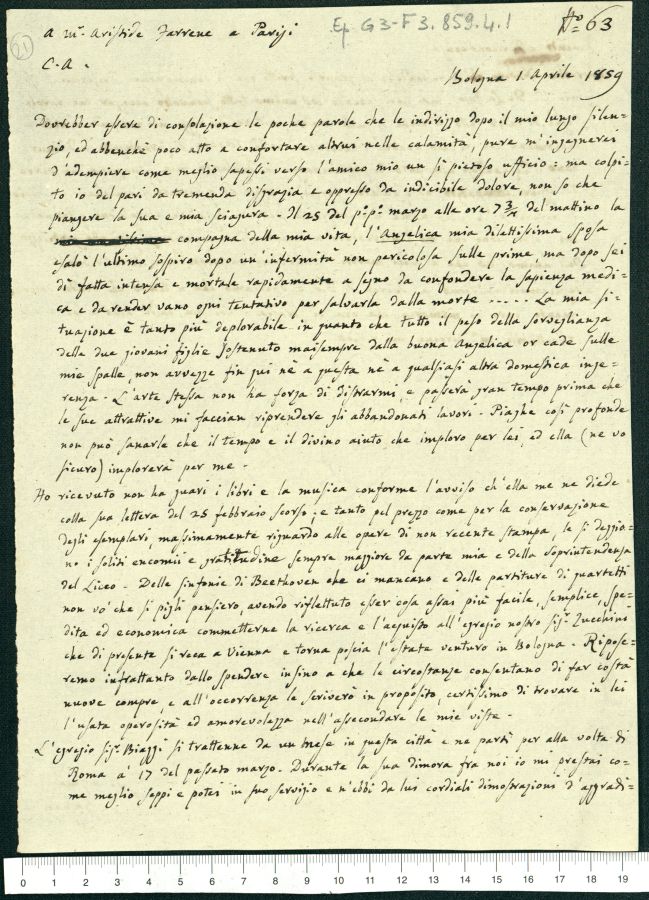 21
A Mr. Aristide Farrene a Parigi
Ep. G3-F3.859.4.1
No. 63
C. A.
Bologna 1 Aprile 1859
Dovrebber essere di consolazione le poche parole che le indirizzo dopo il mio lungo silen=
zio, ed abbenchè poco atto a confortare altrui nelle calamità, pure m'ingegnerei
d'adempiere come meglio sapessi verso l'amico mio un sì pietoso ufficio: ma colpi=
to io del pari da tremenda disgrazia e oppresso da indicibile dolore, non so che
piangere la sua e mia sciagura. Il 25 del p.o p.o marzo alle ore 7 3/4 del mattino la
compagna della mia vita, l'Angelica mia dilettissima sposa
esalò l'ultimo sospiro dopo un'infermità non pericolosa sulle prime, ma dopo sei
dì fatta intensa e mortale rapidamente a segno da confondere la sapienza medi=
ca e da render vano ogni tentativo per salvarla dalla morte ..... La mia si=
tuazione è tanto più deplorabile in quanto che tutto il peso della sorveglianza
delle due giovani figlie sostenuto maisempre dalla buona Angelica or cade sulle
mie spalle, non avvezze fin qui nè a questa nè a qualsiasi altra domestica inge=
renza. L'arte stessa non ha forza di distrarmi, e passerà gran tempo prima che
le sue attrattive mi faccian riprendere gli abbandonati lavori. Piaghe così profonde
non può sanarle che il tempo e il divino aiuto che imploro per lei, ed ella (ne vo
sicuro) implorerà per me.
Ho ricevuto non ha guari i libri e la musica conforme l'avviso ch'ella me ne diede
colla sua lettera del 25 febbraio scorso; e tanto pel prezzo come per la conservazione
degli esemplari, massimamente riguardo alle opere di non recente stampa, le si deggio=
no i soliti encomii e gratitudine sempre maggiore da parte mia e della soprintendenza
del Liceo. Delle sinfonie di Beethoven che ci mancano e delle partiture di quartetti
non vo' che si pigli pensiero, avendo riflettuto esser cosa assai più facile, semplice, spe=
dita ed economica commetterne la ricerca e l'acquisto all'egregio nostro sigr. Zucchini
che di presente si reca a Vienna e torna poscia l'estate venturo in Bologna. Ripose=
remo infrattanto dallo spendere insino a che le circostanze consentano di far costà
nuove compre, e all'occorrenza le scriverò in proposito, certissimo di trovare in lei
l'usata operosità ed amorevolezza nell'assecondare le mie viste.
L'egregio sigr. Biaggi si trattenne da un mese in questa città e ne partì per alla volta di
Roma a' 17 del passato marzo. Durante la sua dimora fra noi io mi prestai co=
me meglio seppi e potei in suo servigio e n'ebbi da lui cordiali dimostrazioni d'aggradi=
0 1 2 3 4 5 6 7 8 9 10 11 12 13 14 15 16 17 18 19